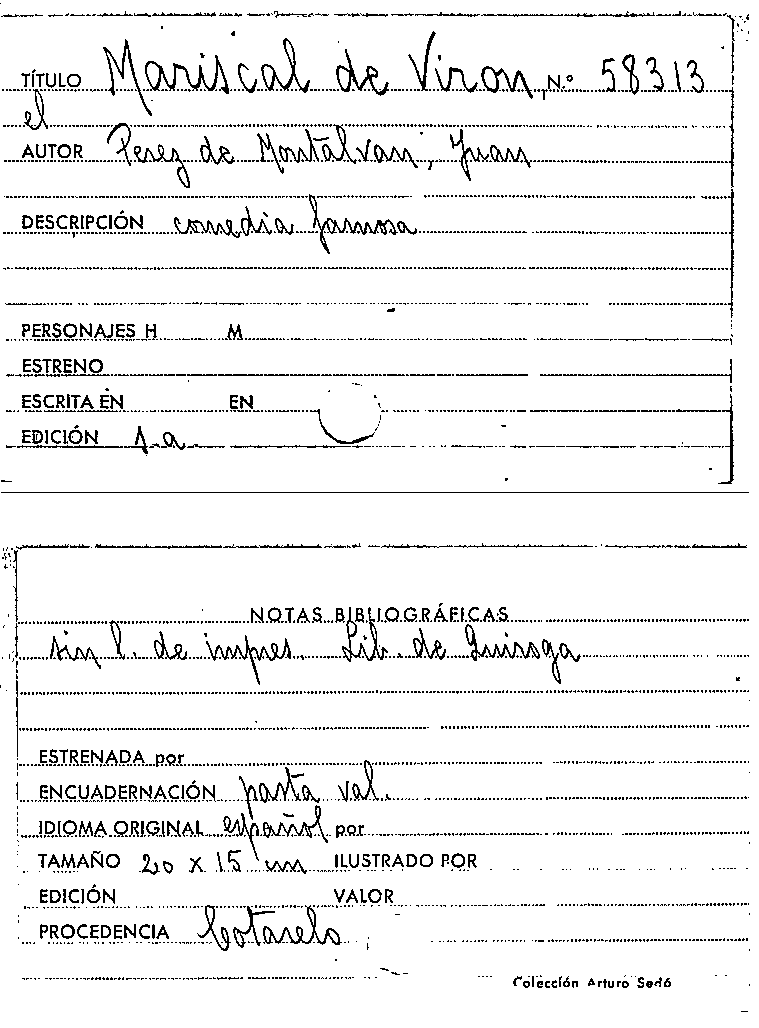 TÍTULO Mariscal de Viron, N.º 58313
el
AUTOR Perez de Montalvan, Juan
DESCRIPCIÓN comedia famosa
PERSONAJES H M
ESTRENO
ESCRITA EN EN
EDICIÓN s.a.
NOTAS BIBLIOGRÁFICAS
sin l. de impres. Lib. de Quiroga
ESTRENADA por
ENCUADERNACIÓN pasta val.
IDIOMA ORIGINAL español por
TAMAÑO 20 x 15 cm ILUSTRADO POR
EDICIÓN VALOR
PROCEDENCIA Cotarelo
Colección Arturo Sedó